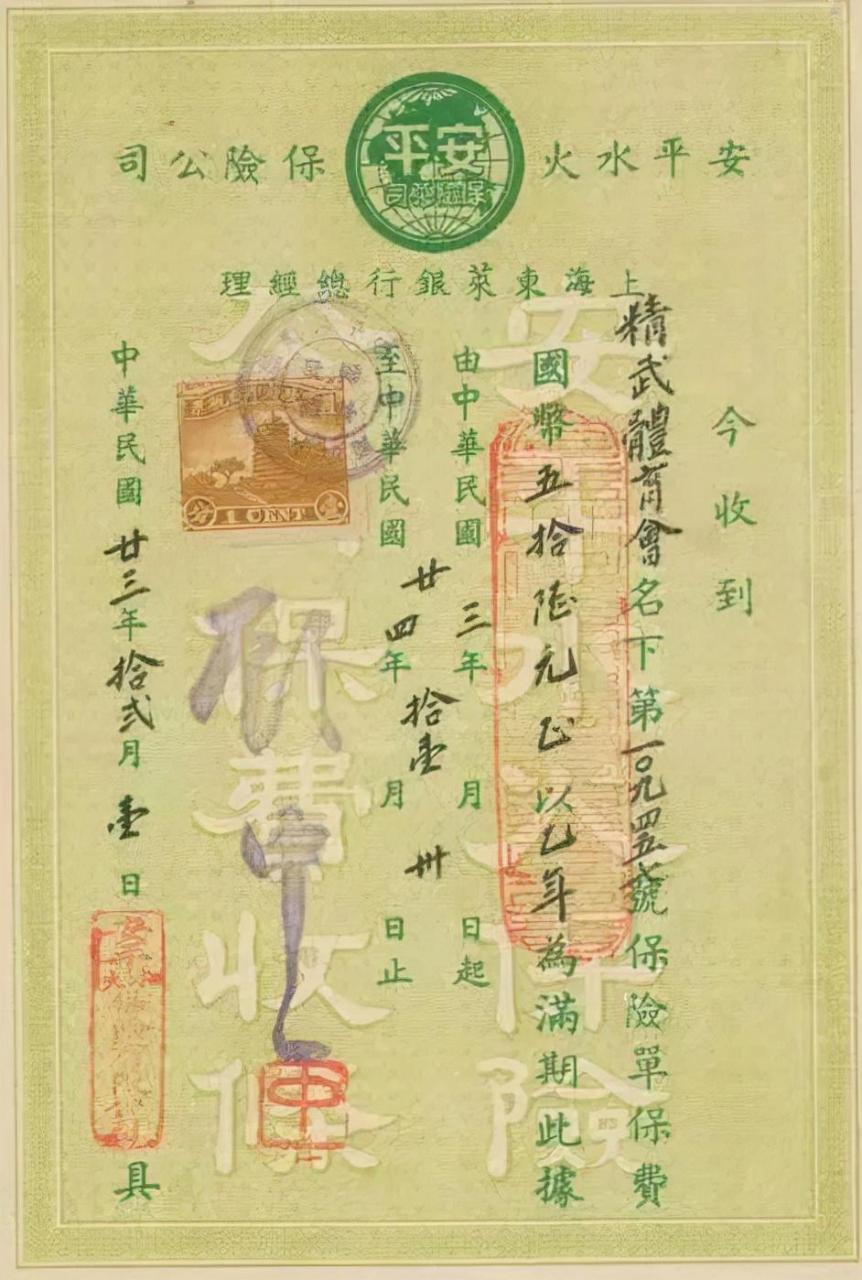 安平水火保險公司
安平
保險公司
上海東萊銀行總經理
今收到
精武體育會名下第一〇九四五七號保險單保費
國幣五拾陸元正以乙年為滿期此據
由中華民國廿三年拾壹月卅日起
至中華民國廿四年拾壹月卅日止
1 CENT
中華民國廿三年拾弍月壹日
具
安平水火保險公
保費收條